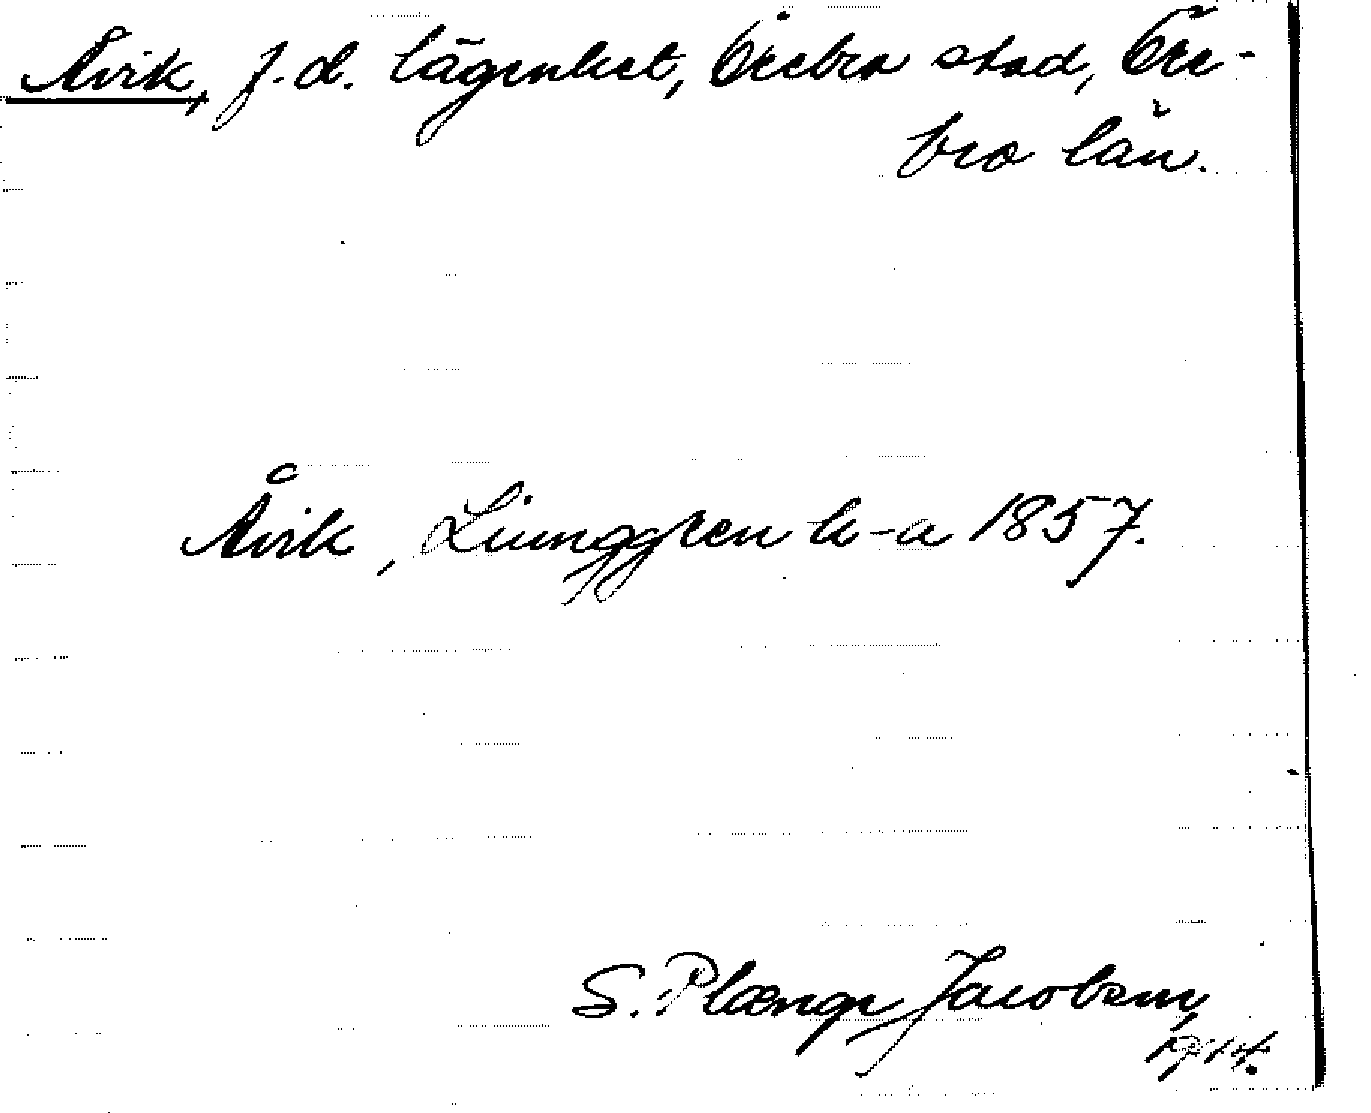 Åvik, f.d. lägenhet, Örebro stad, Öre-
bro län.
Åvik, Ljunggren h-a 1857.
S. Plænge Jacobson,
1914.